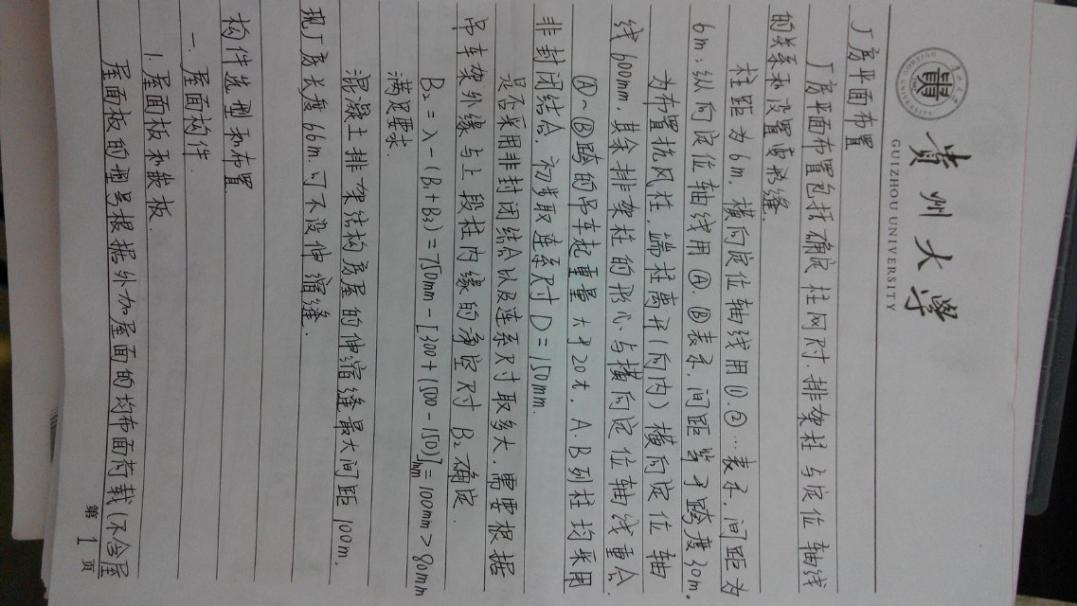 贵州大学
GUIZHOU UNIVERSITY
厂房平面布置
厂房平面布置包括确定柱网尺寸、排架柱与定位轴线
的关系和设置变形缝.
柱距为6m, 横向定位轴线用①.②…表示, 间距为
6m; 纵向定位轴线用Ⓐ.Ⓑ表示, 间距等于跨度30m.
为布置抗风柱, 端柱离开(向内)横向定位轴
线600mm, 其余排架柱的形心与横向定位轴线重合.
Ⓐ~Ⓑ跨的吊车起重量大于20t, A.B列柱均采用
非封闭结合, 初步取连系尺寸D=150mm.
是否采用非封闭结合以及连系尺寸取多大, 需要根据
吊车架外缘与上段柱内缘的净空尺寸B₂确定.
B₂=λ-(B₁+B₃)=750mm-[300+(500-150)]mm=100mm>80mm
满足要求.
混凝土排架结构房屋的伸缩缝最大间距100m,
现厂房长度66m, 可不设伸缩缝.
构件选型和布置
一、屋面构件
1.屋面板和嵌板.
屋面板的型号根据外加屋面的均布面荷载(不含屋
第1页